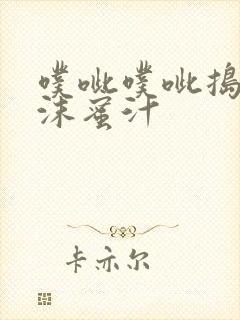 噗呲噗呲捣
沫蜜汁
卡亦尔